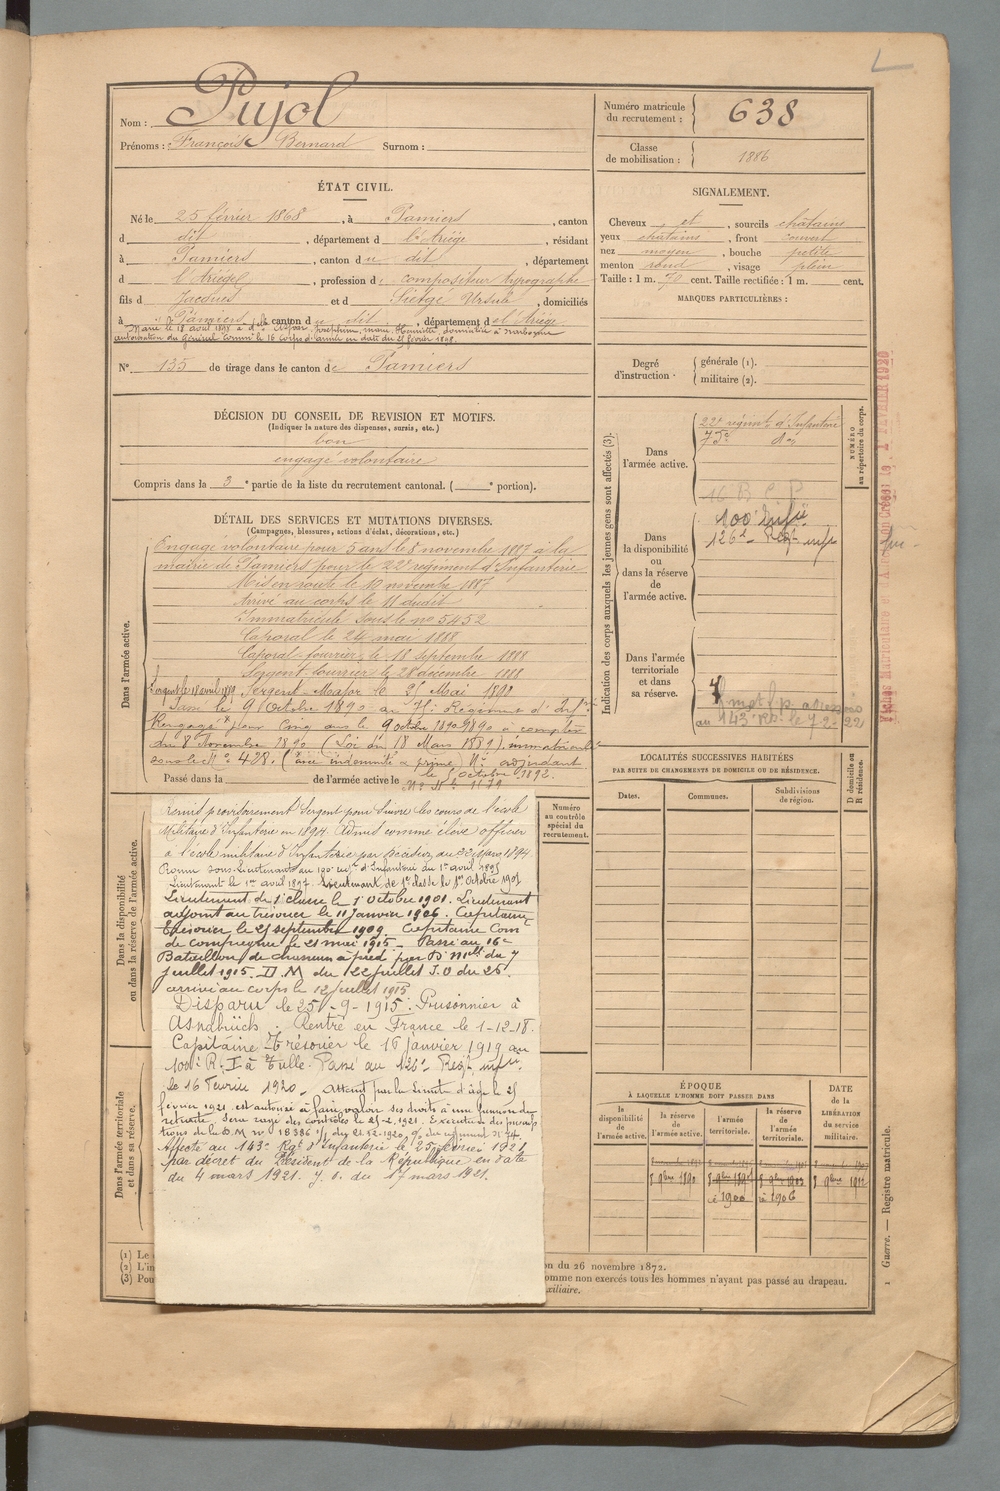 Nom : Pujol
Prénoms : François Bernard Surnom :
Numéro matricule du recrutement : 638
Classe de mobilisation : 1886
ÉTAT CIVIL.
Né le 25 février 1868, à Pamiers, canton
d dit, département d l'Ariège, résidant
à Pamiers, canton du dit, département
d l'Ariège, profession d compositeur typographe
fils d Jacques et d Ursule, domiciliés
à Pamiers canton du dit, département d l'Ariège
Marié le 18 avril à Joséphine, Henriette, domiciliée à Narbonne
autorisation du Général Comm. le 16 corps d'armée en date du février
N° 135 de tirage dans le canton de Pamiers
SIGNALEMENT.
Cheveux et, sourcils châtains
yeux châtains, front couvert
nez moyen, bouche petite
menton rond, visage plein
Taille : 1 m. 70 cent. Taille rectifiée : 1 m. cent.
MARQUES PARTICULIÈRES :
Degré d'instruction
générale (1).
militaire (2).
DÉCISION DU CONSEIL DE REVISION ET MOTIFS.
(Indiquer la nature des dispenses, sursis, etc.)
bon
engagé volontaire
Compris dans la 3e partie de la liste du recrutement cantonal. ( e portion).
DÉTAIL DES SERVICES ET MUTATIONS DIVERSES.
(Campagnes, blessures, actions d'éclat, décorations, etc.)
Dans l'armée active.
Engagé volontaire pour 5 ans le 8 novembre 1887 à la
mairie de Pamiers pour le 22e régiment d'Infanterie
Mis en route le 10 novembre 1887
Arrivé au corps le 11 dudit
Immatriculé sous le no 5452
Caporal le 24 mai 1888
Caporal-fourrier le 18 septembre 1888
Sergent fourrier le 28 décembre 1888
Sergent le 18 avril 1889 Sergent-Major le Mai
Passé le 9 Octobre 1890 au Régiment d'Inf
Rengagé pour Cinq ans le 9 octobre 1890 à compter
du 8 Novembre 1890 (Loi du 18 Mars 1889) immatriculé
sous le N° 428. (avec indemnité & prime) Né adjudant
le 5 octobre 1892.
Passé dans la de l'armée active le
No Mle 1179
Remis provisoirement Sergent pour Suivre les cours de l'école
Militaire d'Infanterie en 1894. Admis comme élève officier
à l'école militaire d'Infanterie par décision du mars 1894
Promu sous-Lieutenant au régt d'Infanterie du 1er avril 1895
Lieutenant le 1er avril 1897. Lieutenant de 1e classe le 1er Octobre 1901
Lieutenant de 1e classe le 1er Octobre 1901. Lieutenant
adjoint au trésorier le 11 Janvier 1906. Capitaine
trésorier le 25 septembre 1909 Capitaine Com
de compagnie le 21 mai 1915. Passé au 16e
Bataillon de chasseurs à pied par Don Melle du 7
juillet 1915. D.M du 22 juillet J.O du 25.
arrivé au corps le 12 juillet 1915
Disparu le 25-9-1915. Prisonnier à
Asnabrüch. Rentré en France le 1-12-18.
Capitaine Trésorier le 16 janvier 1919 au
100e R.I à Tulle. Passé au 126e Regt inf.
le 16 Février 1920. Atteint par la limite d'âge le 25
février 1921 est autorisé à faire valoir ses droits à une pension de
retraite. Sera rayé des contrôles le 25-2-1921. Exécution des prescrip
tions de la D.M no 18386 1/1 du 21-12-1920,
Affecté au 143e Rgt d'Infanterie le 25 février 1921
par décret du Président de la République en date
du 4 mars 1921. J.O. du 17 mars 1921.
Indication des corps auxquels les jeunes gens sont affectés (3).
NUMÉRO au répertoire du corps.
Dans l'armée active.
22e régimt d'Infanterie
do
Dans la disponibilité ou dans la réserve de l'armée active.
16 B C P
100e Inf
126e Regt inf
Dans l'armée territoriale et dans sa réserve.
au 143e RI. le 7-2-22
LOCALITÉS SUCCESSIVES HABITÉES
PAR SUITE DE CHANGEMENTS DE DOMICILE OU DE RÉSIDENCE.
Dates. Communes. Subdivisions de région. D domicile ou R résidence.
Dans la disponibilité ou dans la réserve de l'armée active.
Dans l'armée territoriale et dans sa réserve.
Numéro au contrôle spécial du recrutement.
ÉPOQUE
À LAQUELLE L'HOMME DOIT PASSER DANS
la disponibilité de l'armée active.
la réserve de l'armée active.
l'armée territoriale.
la réserve de l'armée territoriale.
DATE de la LIBÉRATION du service militaire.
(1) Le
(2) L'in
(3) Pou
on du 26 novembre 1872.
omme non exercés tous les hommes n'ayant pas passé au drapeau.
xiliaire.
1 Guerre. — Registre matricule.